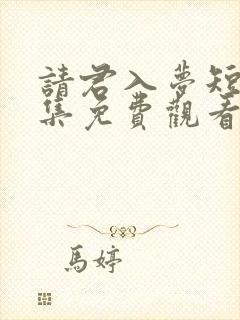 請君入夢短
集免費觀看
馬婷